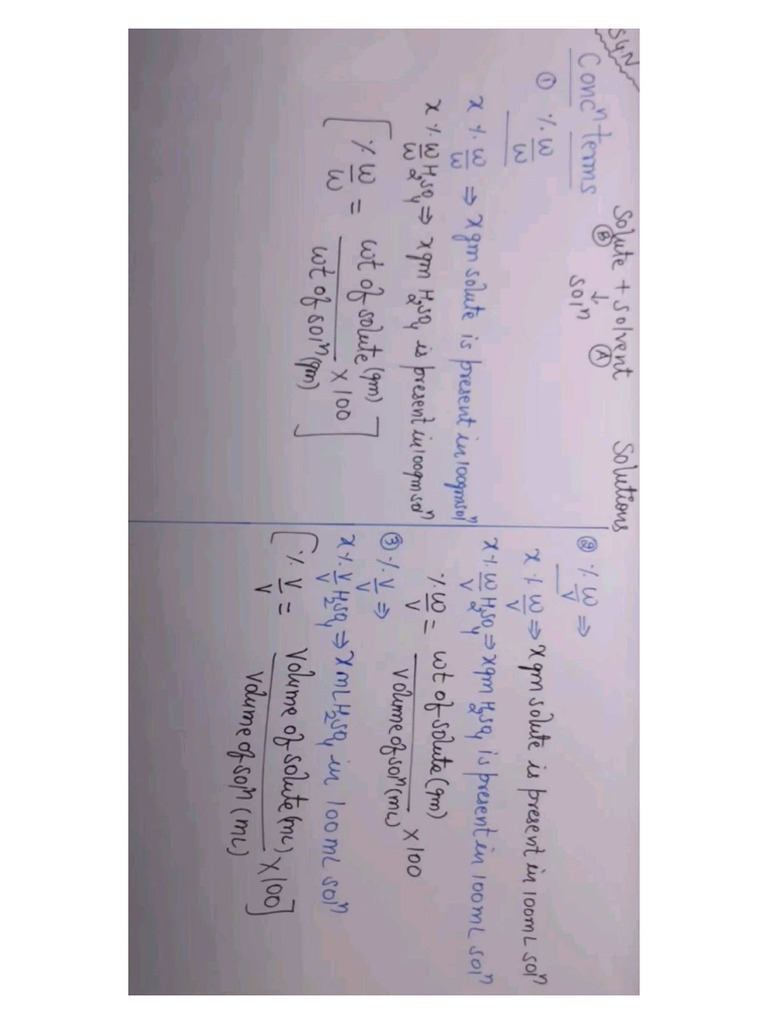 S4N
Solutions
Solute + solvent
Ⓑ ↓ Ⓐ
solⁿ
Concⁿ terms
① % w/w
x % w/w ⇒ x gm solute is present in 100gm solⁿ
x % w/w H₂SO₄ ⇒ x gm H₂SO₄ is present in 100gm solⁿ
[% w/w = wt of solute (gm) / wt of solⁿ (gm) × 100]
② % w/v ⇒
x % w/v ⇒ x gm solute is present in 100mL solⁿ
x % w/v H₂SO₄ ⇒ x gm H₂SO₄ is present in 100mL solⁿ
% w/v = wt of solute (gm) / volume of solⁿ (mL) × 100
③ % v/v ⇒
x % v/v H₂SO₄ ⇒ x mL H₂SO₄ in 100mL solⁿ
[% v/v = Volume of solute (mL) / volume of solⁿ (mL) × 100]